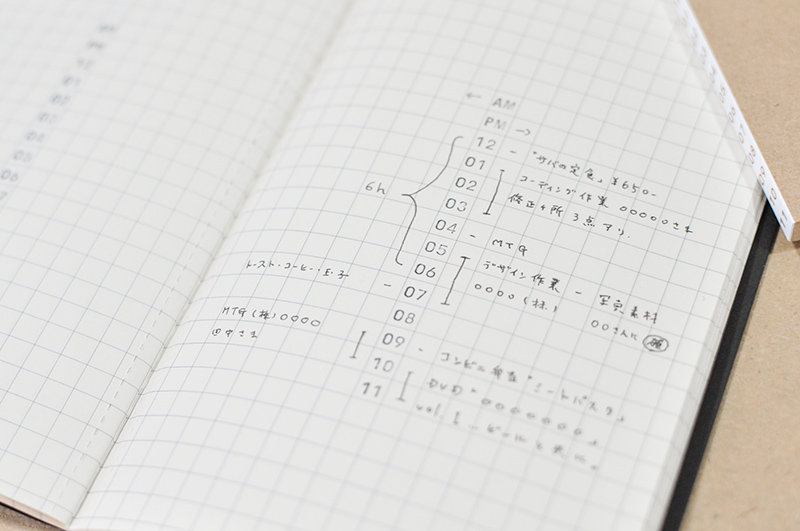 ← AM
PM →
12 - "サバの定食」¥650-
01
コーディング作業 00000さま
02
修正ヶ所 3点アリ.
03
6h
04 - MTG
05
デザイン作業 - 写真素材
06
0000(株) 00さんに
トースト・コーヒー・玉子 - 07
08
MTG(株)0000
田中さま
09 - コンビニ弁当 "ミートパスタ"
10
DVD "0000000"
11
vol 1 ービールと共に。
05
06